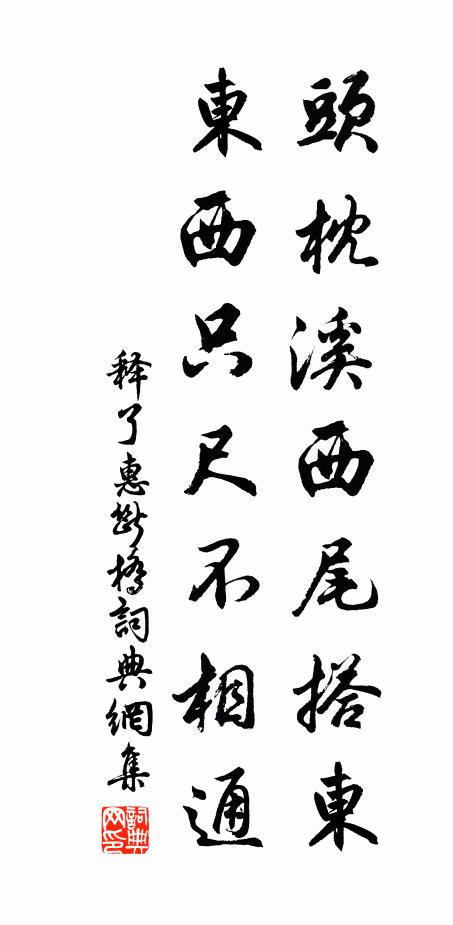 頭枕溪西尾搭東
東西只尺不相通
释了惠斷橋詞典網集
詞典网印